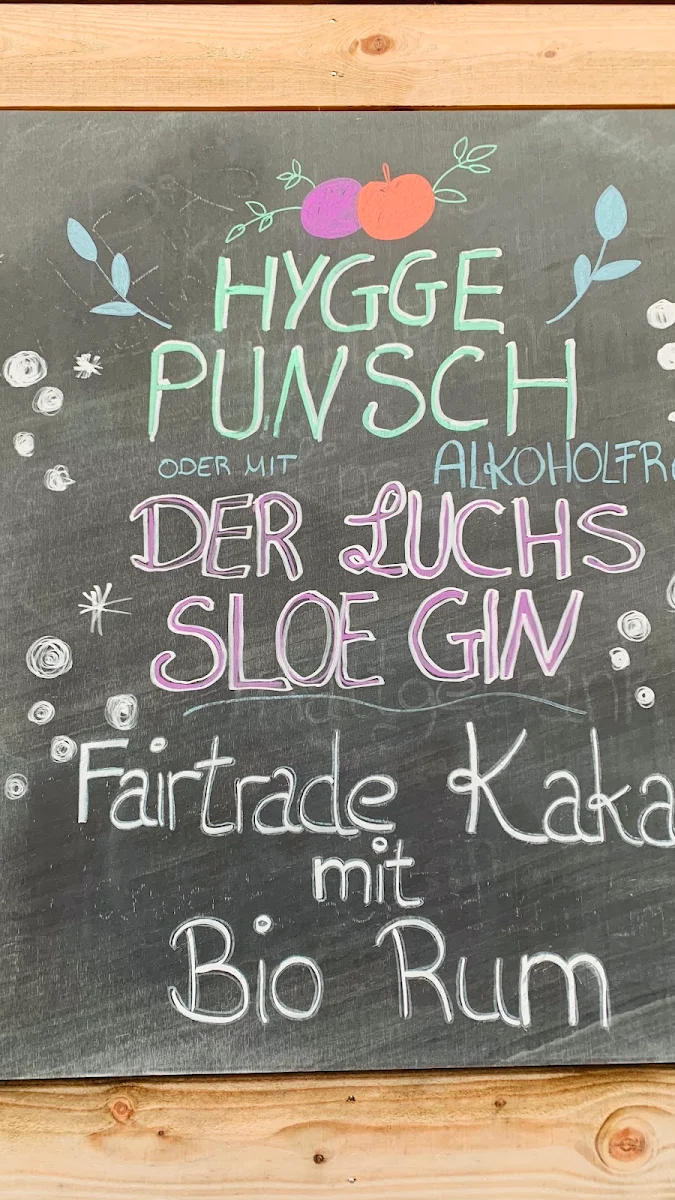 HYGGE
PUNSCH
ODER MIT ALKOHOLFR
DER LUCHS
SLOE GIN
Fairtrade Kaka
mit
Bio Rum